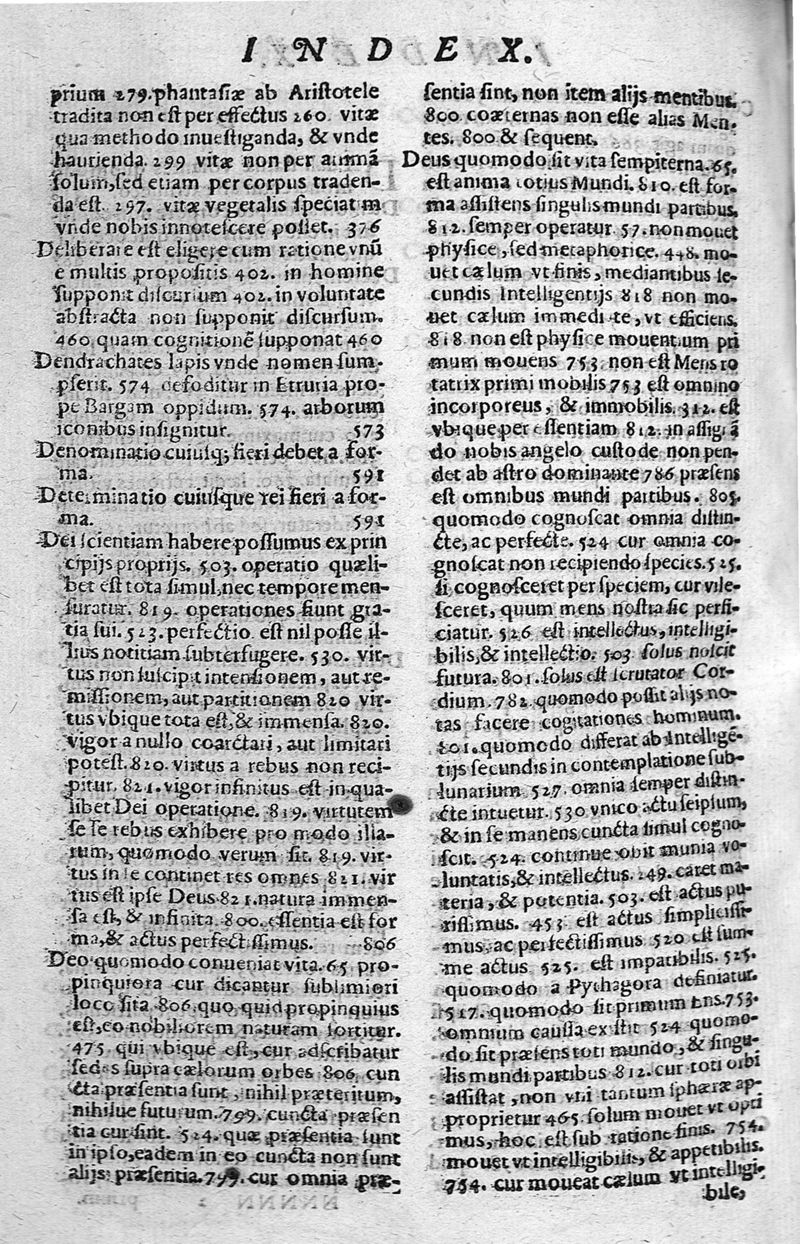 INDEX.
prium 279. phantasiæ ab Aristotele
tradita non est per effectus 260. vitæ
qua methodo inuestiganda, & vnde
haurienda. 299 vitæ non per animā
solum, sed etiam per corpus traden-
da est. 297. vitæ vegetalis speciatim
vnde nobis innotescere posset. 376
Deliberare est eligere cum ratione vnū
e multis propositis 402. in homine
supponit discursum 402. in voluntate
abstracta non supponit discursum.
460. quam cognitionē supponat 460
Dendrachates lapis vnde nomen sum-
pserit. 574 defoditur in Etruria pro-
pe Bargam oppidum. 574. arborum
iconibus insignitur. 573
Denominatio cuiusq; fieri debet a for-
ma. 591
Determinatio cuiusque rei fieri a for-
ma. 591
Dei scientiam habere possumus ex prin
cipijs proprijs. 503. operatio quæli-
bet est tota simul, nec tempore men-
suratur. 819. operationes fiunt gra-
tia sui. 523. perfectio est nil posse il-
lius notitiam subterfugere. 530. vir-
tus non suscipit intensionem, aut re-
missionem, aut partitionem 820 vir-
tus vbique tota est, & immensa. 820.
vigor a nullo coarctari, aut limitari
potest. 820. virtus a rebus non reci-
pitur. 821. vigor infinitus est in qua-
libet Dei operatione. 819. virtutem
se se rebus exhibere pro modo illa-
rum, quomodo verum sit. 819. vir-
tus in se continet res omnes 821. vir
tus est ipse Deus 821. natura immen-
sa est, & infinita. 800. essentia est for
ma, & actus perfectissimus. 806
Deo quomodo conueniat vita. 65 pro-
pinquiora cur dicantur sublimiori
loco sita 806. quo quid propinquius
est, eo nobiliorem naturam sortitur.
475 qui vbique est, cur adscribatur
sedes supra cælorum orbes 806. cun
cta præsentia sunt, nihil præteritum,
nihilue futurum. 799. cuncta præsen
tia cur sint. 524. quæ præsentia sunt
in ipso, eadem in eo cuncta non sunt
alijs præsentia. 799. cur omnia præ-
sentia sint, non item alijs mentibus.
800 coæternas non esse alias Men-
tes. 800 & sequent.
Deus quomodo sit vita sempiterna. 65.
est anima totius Mundi. 810. est for-
ma assistens singulis mundi partibus.
812. semper operatur. 57. non mouet
physice, sed metaphorice. 448. mo-
uet cælum vt finis, mediantibus se-
cundis Intelligentijs 818 non mo-
uet cælum immediate, vt efficiens.
818. non est physice mouentium pri
mum mouens 753. non est Mens ro
tatrix primi mobilis 753 est omnino
incorporeus, & immobilis. 312. est
vbique per essentiam 812. in assignā
do nobis angelo custode non pen-
det ab astro dominante 786 præsens
est omnibus mundi partibus. 805.
quomodo cognoscat omnia distin-
cte, ac perfecte. 524 cur omnia co-
gnoscat non recipiendo species. 525.
si cognosceret per speciem, cur vile-
sceret, quum mens nostra sic perfi-
ciatur. 526 est intellectus, intelligi-
bilis, & intellectio. 503 solus noscit
futura. 801. solus est scrutator Cor-
dium. 782. quomodo possit alijs no-
tas facere cogitationes hominum.
801. quomodo differat ab Intelligē-
tijs secundis in contemplatione sub-
lunarium. 527. omnia semper distin-
cte intuetur. 530 vnico actu seipsum,
& in se manens cuncta simul cogno-
scit. 524. continue obit munia vo-
luntatis, & intellectus. 249. caret ma-
teria, & potentia. 503. est actus pu-
rissimus. 453 est actus simplicissi-
mus, ac perfectissimus 520 est sum-
me actus 525. est impatibilis. 525.
quomodo a Pythagora definiatur.
517. quomodo sit primum Ens. 753.
omnium caussa existit 524 quomo-
do sit præsens toti mundo, & singu-
lis mundi partibus 812. cur toti orbi
assistat, non vni tantum sphæræ ap-
proprietur 465. solum mouet vt opti
mus, hoc est sub ratione finis. 754.
mouet vt intelligibilis, & appetibilis.
754. cur moueat cælum vt intelligi-
bile,